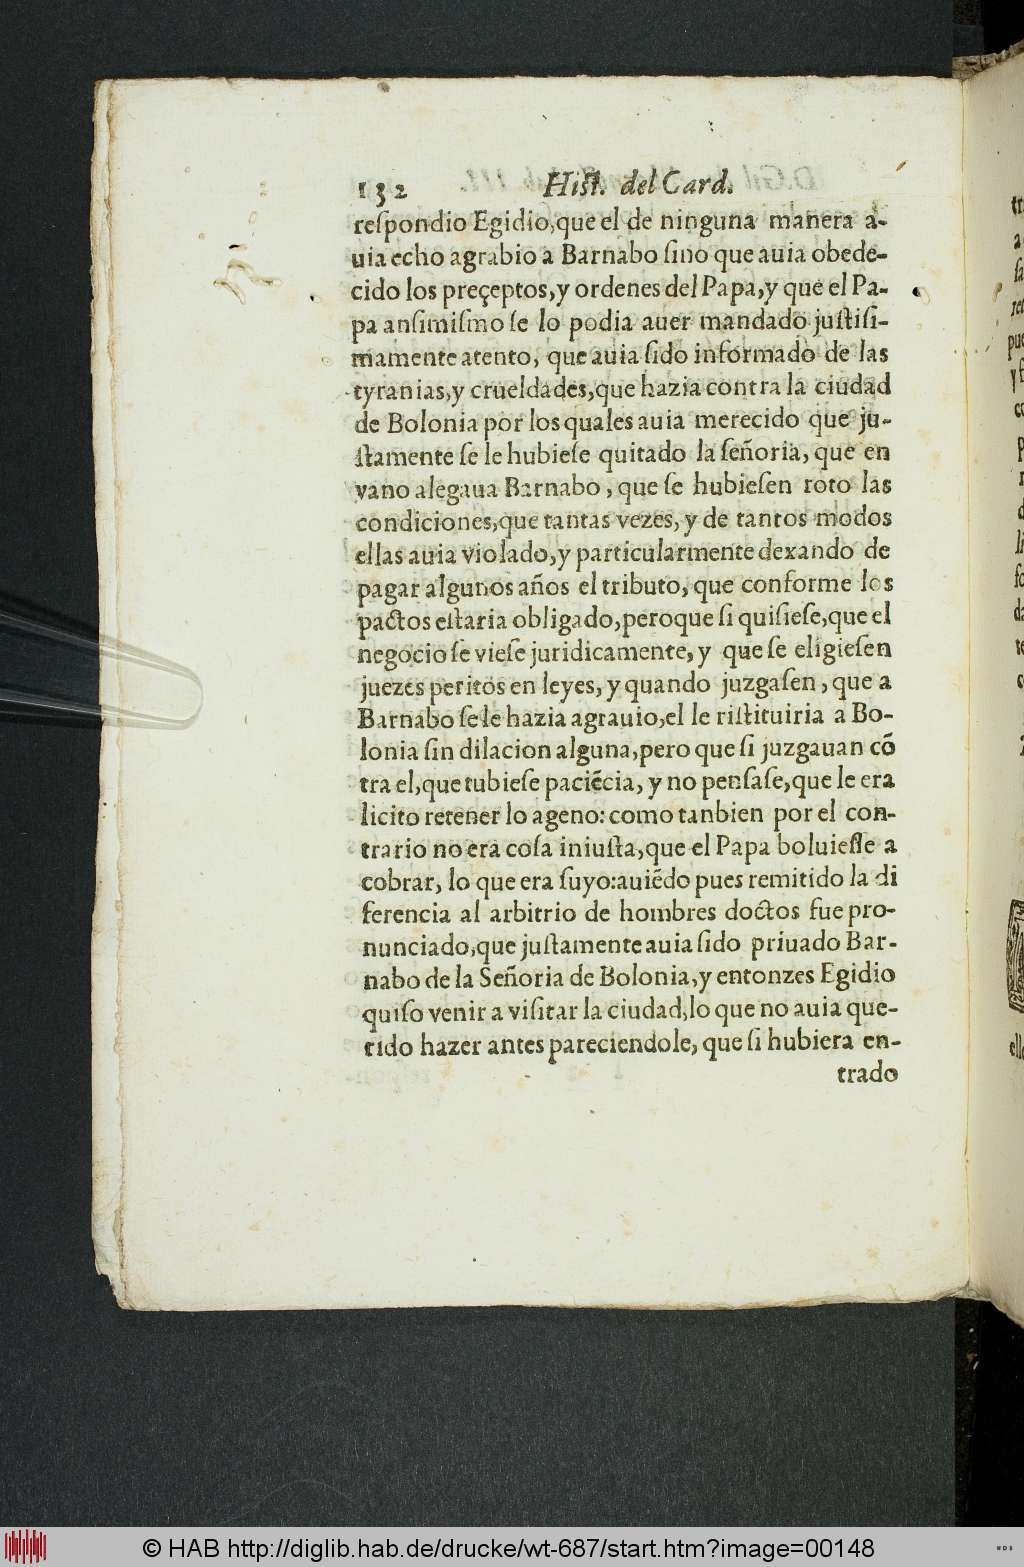 132 Hist. del Card.
reſpondio Egidio,que el de ninguna manera a-
uia echo agrabio a Barnabo ſino que auia obede-
cido los preçeptos,y ordenes del Papa,y que el Pa-
pa anſimiſmo ſe lo podia auer mandado juſtiſi-
mamente atento, que auia ſido informado de las
tyranias,y crueldades,que hazia contra la ciudad
de Bolonia por los quales auia merecido que ju-
ſtamente ſe le hubieſe quitado la ſeñoria, que en
vano alegaua Barnabo, que ſe hubieſen roto las
condiciones,que tantas vezes, y de tantos modos
ellas auia violado,y particularmente dexando de
pagar algunos años el tributo, que conforme los
pactos eſtaria obligado,peroque ſi quiſieſe,que el
negocio ſe vieſe juridicamente, y que ſe eligieſen
juezes peritos en leyes, y quando juzgaſen, que a
Barnabo ſe le hazia agrauio,el le riſtituiria a Bo-
lonia ſin dilacion alguna,pero que ſi juzgauan cõ
tra el,que tubieſe paciẽcia, y no penſaſe,que le era
licito retener lo ageno: como tanbien por el con-
trario no era coſa iniuſta,que el Papa boluieſſe a
cobrar, lo que era ſuyo:auiẽdo pues remitido la di
ferencia al arbitrio de hombres doctos fue pro-
nunciado,que juſtamente auia ſido priuado Bar-
nabo de la Señoria de Bolonia,y entonzes Egidio
quiſo venir a viſitar la ciudad,lo que no auia que-
rido hazer antes pareciendole, que ſi hubiera en-
trado
© HAB http://diglib.hab.de/drucke/wt-687/start.htm?image=00148